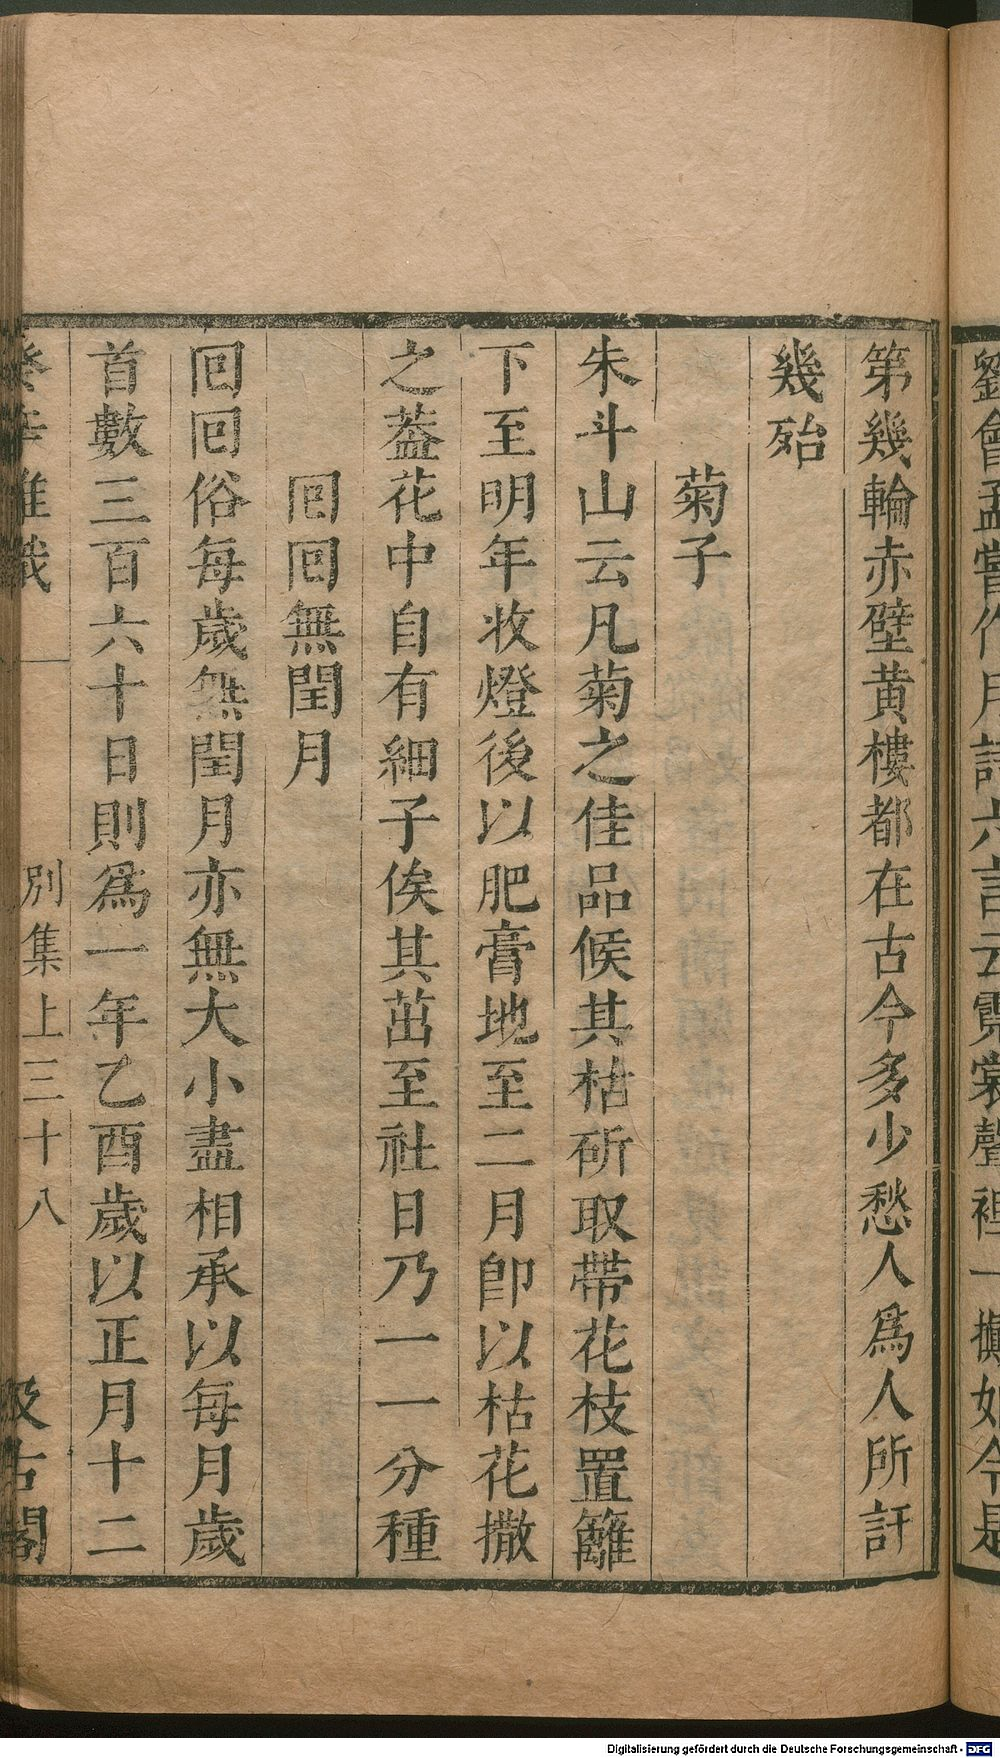 劉會孟嘗作月詩六言云霓裳聲裡一
第幾輪赤壁黃樓都在古今多少愁人爲人所訐
幾殆
菊子
朱斗山云凡菊之佳品候其枯斫取帶花枝置籬
下至明年收燈後以肥膏地至二月卽以枯花撒
之葢花中自有細子俟其茁至社日乃一一分種
回回無閏月
回回俗每歲無閏月亦無大小盡相承以每月歲
首數三百六十日則爲一年乙酉歲以正月十二
癸辛雜識 別集上三十八 汲古閣
Digitalisierung gefördert durch die Deutsche Forschungsgemeinschaft - DFG